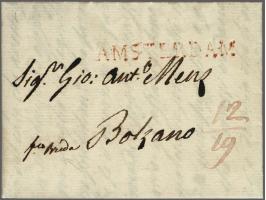 AMSTERDAM
Sig.r Gio: Ant.o Menz
Bolzano
12
19